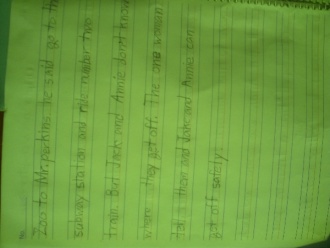 zoo to Mr. perkins. he said go to the
subway station and ride number two
train. But Jack and Annie don't know
where they get off. The one woman
them and Jake and Annie can
got off safely.